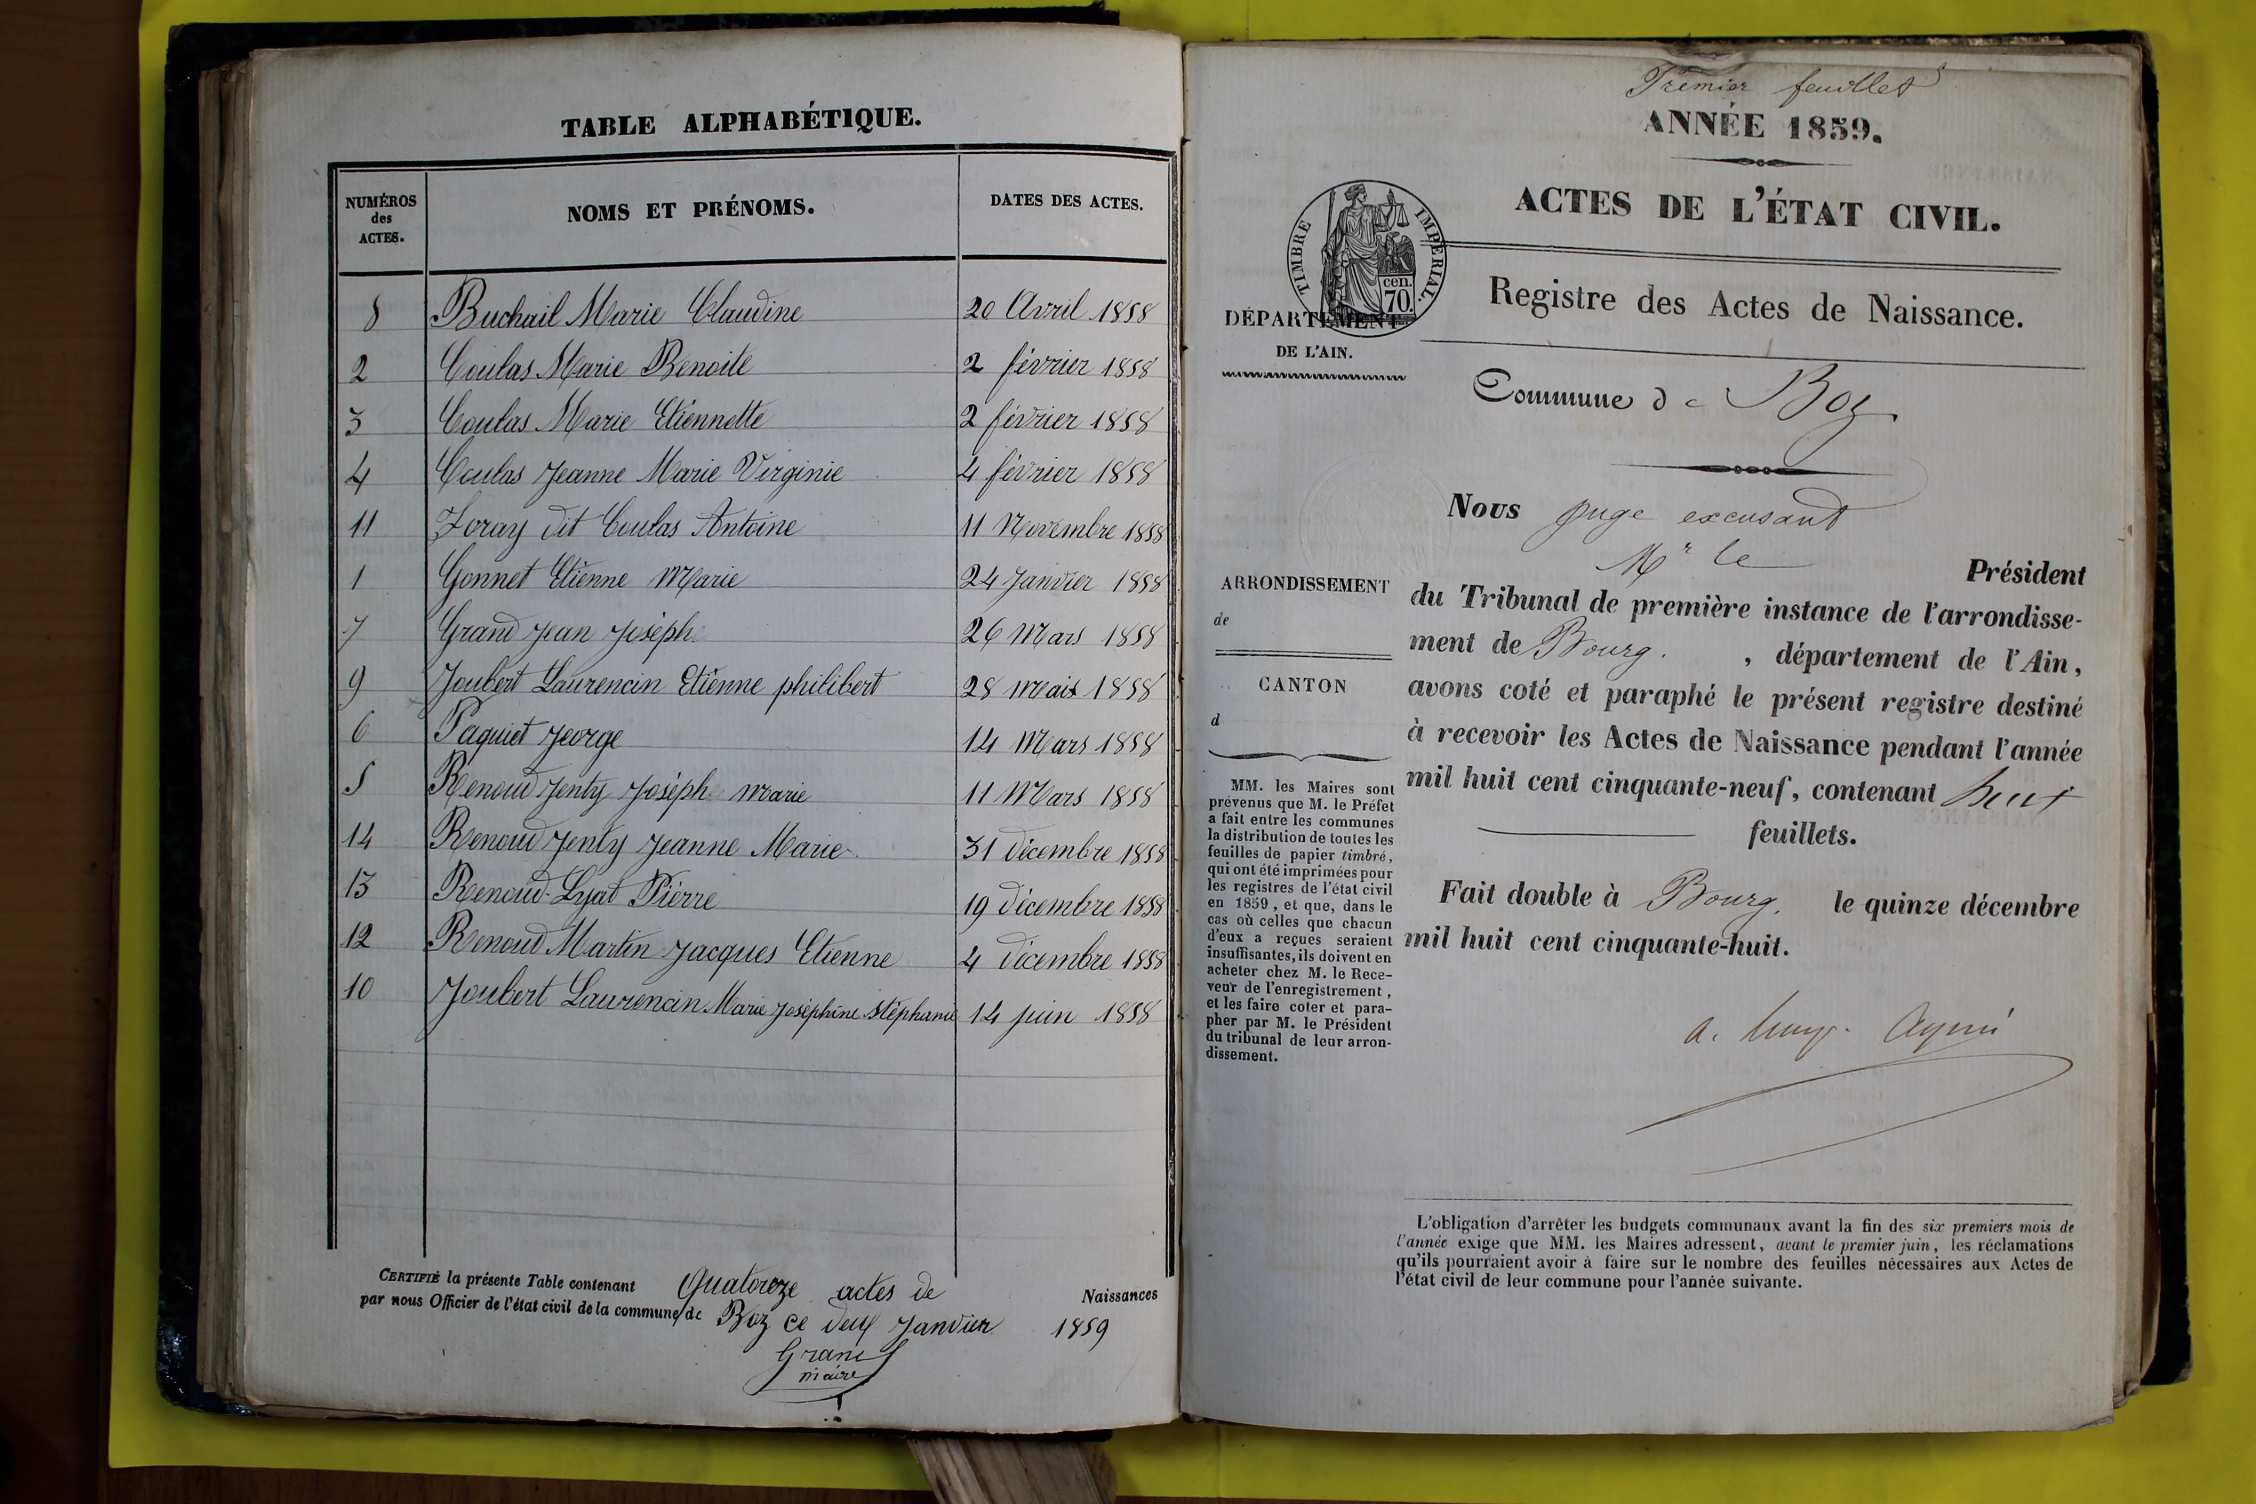 TABLE ALPHABÉTIQUE.
NUMÉROS des ACTES. NOMS ET PRÉNOMS. DATES DES ACTES.
8 Buchail Marie Claudine 20 Avril 1858
2 Coulas Marie Benoite 2 février 1858
3 Coulas Marie Etiennette 2 février 1858
4 Coulas Jeanne Marie Virginie 4 février 1858
11 Loray dit Coulas Antoine 11 Novembre 1858
1 Gonnet Etienne Marie 24 Janvier 1858
7 Grand Jean Joséph 26 Mars 1858
9 Joubert Laurencin Etienne philibert 28 mais 1858
6 Paquiet Jeorge 14 Mars 1858
5 Renoud Jenty Joséph marie 11 Mars 1858
14 Renoud Jenty Jeanne Marie 31 décembre 1858
13 Renoud-Lyat Pierre 19 décembre 1858
12 Renoud Martin Jacques Etienne 4 décembre 1858
10 Joubert Laurencin Marie Joséphine stéphanie 14 juin 1858
CERTIFIÉ la présente Table contenant Quatorze actes de Naissances
par nous Officier de l'état civil de la commune de Boz ce deux Janvier 1859
Grand
maire
Premier feuillet
ANNÉE 1859.
ACTES DE L'ÉTAT CIVIL.
TIMBRE IMPÉRIAL.
cen.
70.
Registre des Actes de Naissance.
DÉPARTEMENT
DE L'AIN.
Commune de Boz
Nous juge excusant
Mr le Président
ARRONDISSEMENT
de
CANTON
d
du Tribunal de première instance de l'arrondisse-
ment de Bourg. , département de l'Ain,
avons coté et paraphé le présent registre destiné
à recevoir les Actes de Naissance pendant l'année
mil huit cent cinquante-neuf, contenant huit
feuillets.
Fait double à Bourg, le quinze décembre
mil huit cent cinquante-huit.
MM. les Maires sont
prévenus que M. le Préfet
a fait entre les communes
la distribution de toutes les
feuilles de papier timbré,
qui ont été imprimées pour
les registres de l'état civil
en 1859, et que, dans le
cas où celles que chacun
d'eux a reçues seraient
insuffisantes, ils doivent en
acheter chez M. le Rece-
veur de l'enregistrement,
et les faire coter et para-
pher par M. le Président
du tribunal de leur arron-
dissement.
L'obligation d'arrêter les budgets communaux avant la fin des six premiers mois de
l'année exige que MM. les Maires adressent, avant le premier juin, les réclamations
qu'ils pourraient avoir à faire sur le nombre des feuilles nécessaires aux Actes de
l'état civil de leur commune pour l'année suivante.